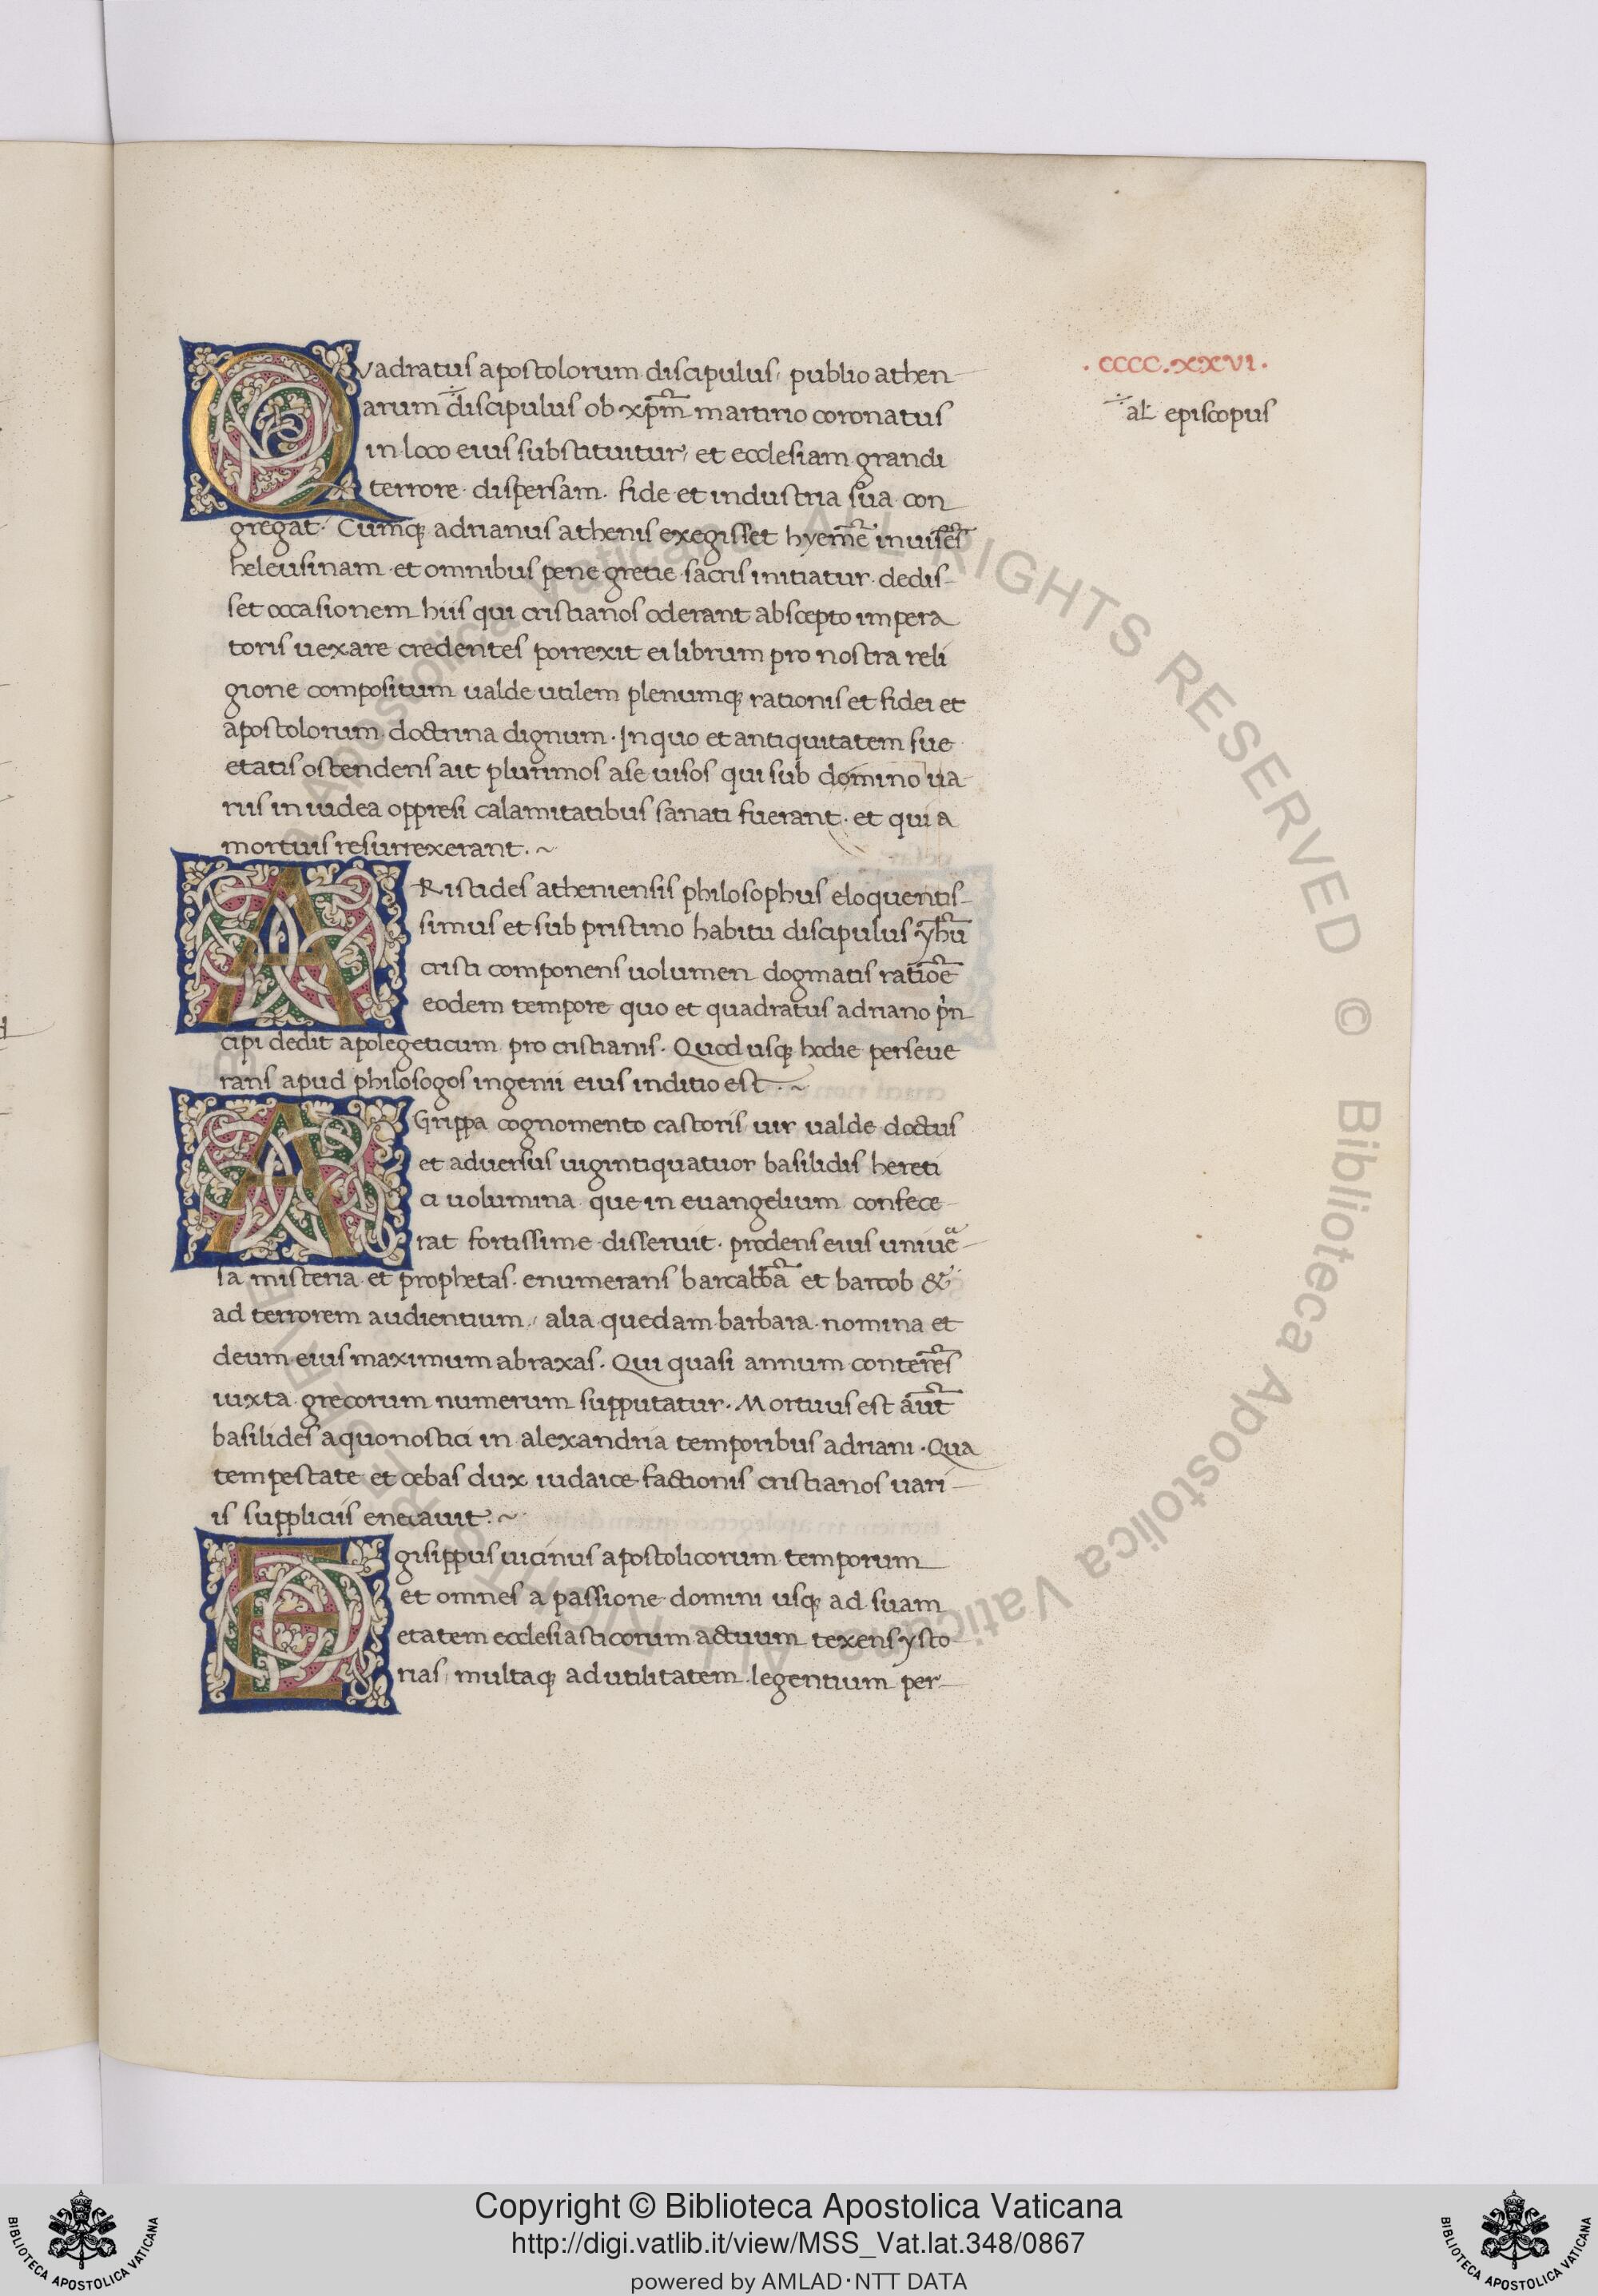 . CCCC.XXVI.
Quadratus apostolorum discipulus, publio athen
arum discipulus ob xpm̃ martirio coronatus
al episcopus
in loco eius substituitur, et ecclesiam grandi
terrore dispersam. fide et industria sua con
gregat. Cumq; adrianus athenis exegisset hyemẽ inuisẽs
heleusinam et omnibus pene gretie sacris initiatur dedis-
set occasionem hiis qui cristianos oderant abscepto impera
toris uexare credentes porrexit ei librum pro nostra reli
gione compositum ualde utilem plenumq; rationis et fidei et
apostolorum doctrina dignum. In quo et antiquitatem sue
etatis ostendens ait plurimos ase uisos qui sub domino ua-
riis in iudea oppresi calamitatibus sanati fuerant. et qui a
mortuis resurrexerant. ~
ARistides atheniensis philosophus eloquentis-
simus et sub pristino habitu discipulus yhũ
cristi componens uolumen dogmatis ratiõe
eodem tempore quo et quadratus adriano prin
cipi dedit apolegeticum pro cristianis. Quod usq; hodie perseue
rans apud philosogos ingenii eius inditio est. ~
AGrippa cognomento castoris uir ualde doctus
et aduersus uigintiquatuor basilidis hereti
ci uolumina que in euangelium confece-
rat fortissime disseruit. prodens eius uniue-
sa misteria et prophetas. enumerans barcabbã et barcob &
ad terrorem audientium, alia quedam barbara nomina et
deum eius maximum abraxas. Qui quasi annum conterẽs
iuxta grecorum numerum supputatur. Mortuus est aũt
basilides aquonostici in alexandria temporibus adriani. Qua
tempestate et cebas dux iudaice factionis cristianos uari-
is suppliciis enecauit. ~
Egisippus uicinus apostolicorum temporum
et omnes a passione domini usq; ad suam
etatem ecclesiasticorum actuum texens ysto-
rias, multaq; ad utilitatem legentium per-
ALL RIGHTS RESERVED © Biblioteca Apostolica Vaticana
Copyright © Biblioteca Apostolica Vaticana
http://digi.vatlib.it/view/MSS_Vat.lat.348/0867
powered by AMLAD·NTT DATA
BIBLIOTECA APOSTOLICA VATICANA
BIBLIOTECA APOSTOLICA VATICANA